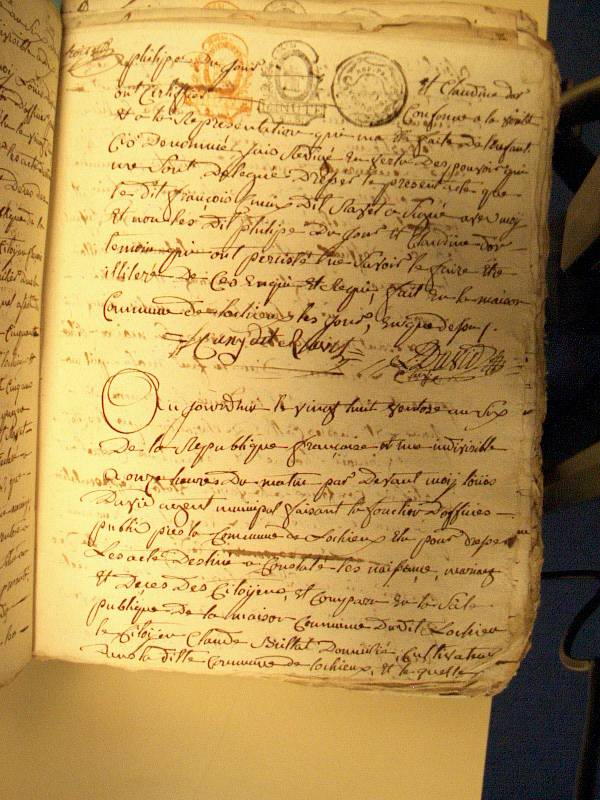 philipe Du Jour et Claudine dor
ont Certiffiés Conforme a la verité
et a la Representation qui ma été faite de l'enfant
Ces Denommé, Jais Redigé En vertu Des pouvoir qui
me sont Delegué, Dresser le present acte que
le dit françois dit a Signé avec moy
Et non les dit philipe Du Jour et Claudine dor
temoin qui ont persisté ne Savoir le faire Etre
illiteré de Ces Enquis Et Requi, fait En la maison
Commune de Lochieu les Jour, En que desus.
David
Aujourdhui le vingt huit ventose an Six
De la Republique française et une indivisible
a onze heures Du matin par Devant moy Louis
David agent municipal faisant le fonction Doffices
public pres la Commune de Lochieu Elu pour dresser
Les acte Destiné a Constaté les naisance, mariag
Et Deçes Des Citoyens, Et Comparu En la Sale
publique De la maison Commune Dudit Lochieu
le Citoyen Claude Billiet Domicilié, Cultivateur
dans la ditte Commune de Lochieux, Et le quelle